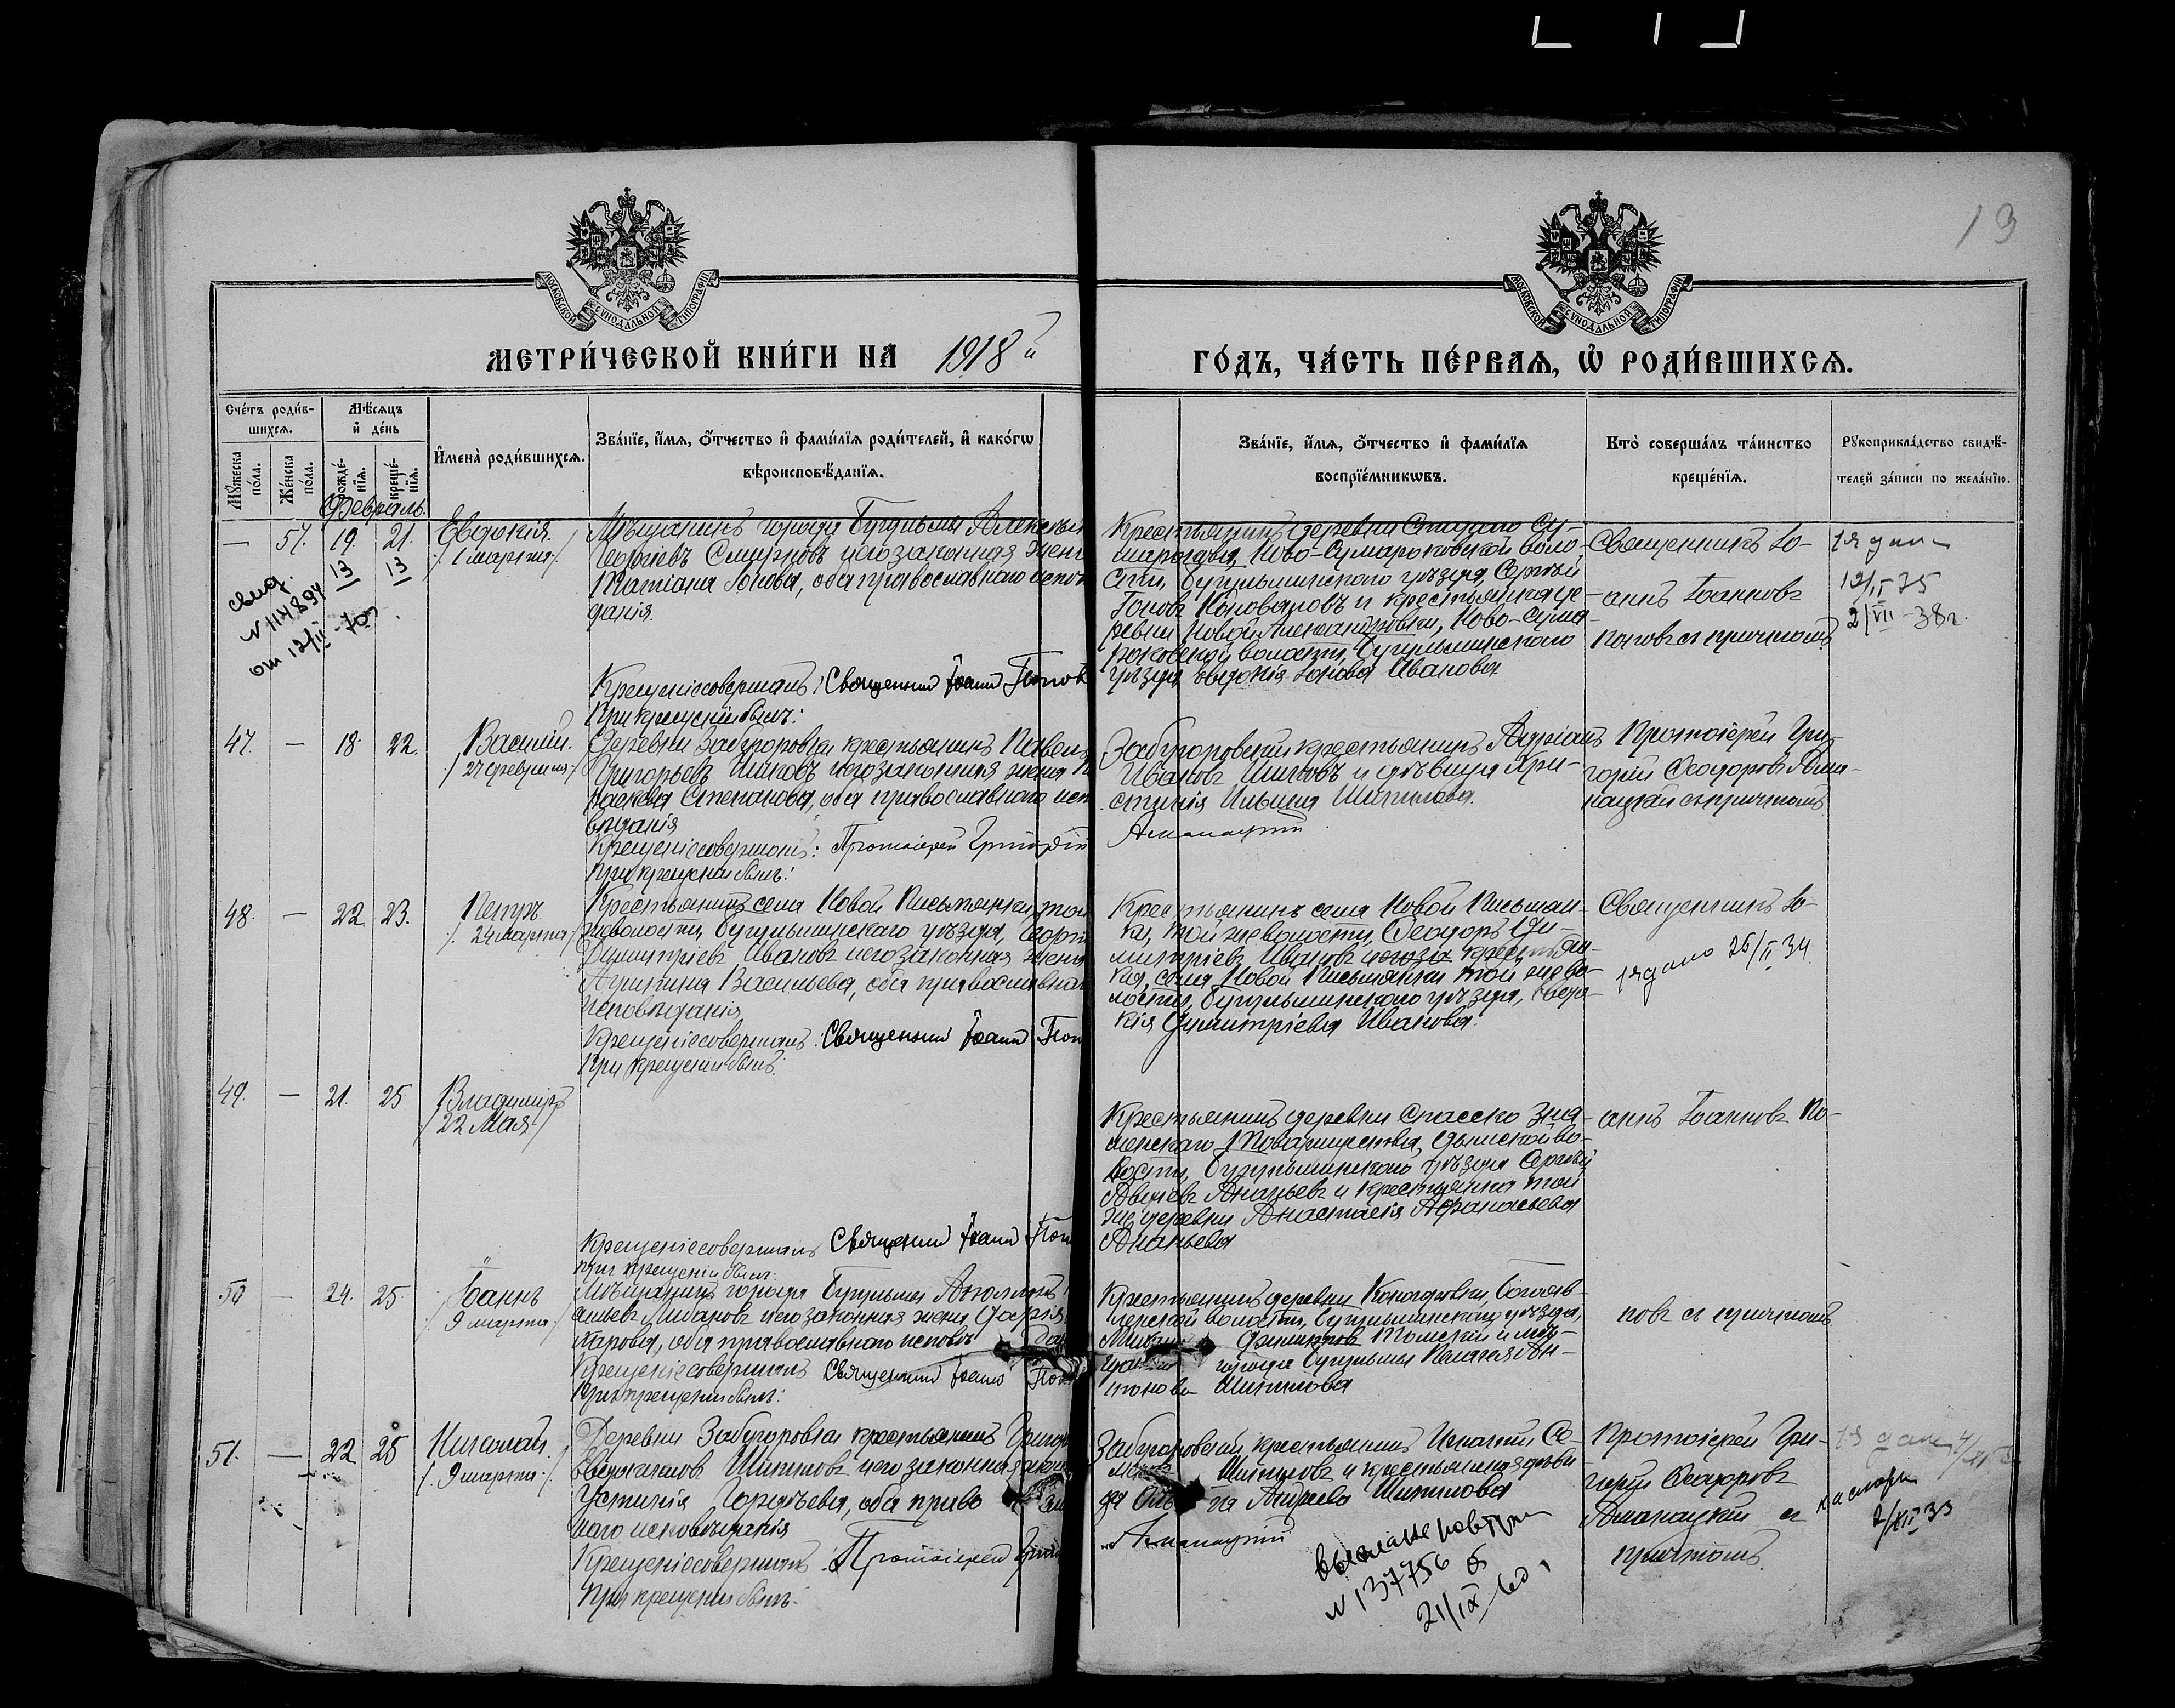 13
МОСКОВСКОЙ СУНОДАЛЬНОЙ ТИПОГРАФІИ
МОСКОВСКОЙ СУНОДАЛЬНОЙ ТИПОГРАФІИ
МЕТРИ́ЧЕСКОЙ КНИ́ГИ НА 1918 й
ГО́ДЪ, ЧА́СТЬ ПЕ́РВАѦ, Ѡ҆ РОДИ́ВШИХСѦ.
Сче́тъ роди́в-
шихсѧ.
Мꙋ́жеска по́ла.
Же́нска по́ла.
Мѣ́сѧцъ
и҆ де́нь
рожде́-
нїѧ.
креще́-
нїѧ.
И҆мена̀ роди́вшихсѧ.
Зва́нїе, и҆́мѧ, ѻ҆́тчество и҆ фами́лїѧ роди́телей, и҆ како́гѡ
вѣроисповѣ́данїѧ.
Зва́нїе, и҆́мѧ, ѻ҆́тчество и҆ фами́лїѧ
воспрїе́мникѡвъ.
Кто̀ соверша́лъ та́инство
креще́нїѧ.
Рꙋкоприкла́дство свидѣ́-
телей за́писи по жела́нїю.
Февраль.
— 57. 19. 21. Евдокія.
13 13 /1 марта/.
свид.
N 114894
от 12/II
Мѣщанинъ города Бугульмы Алексѣй
Георгіевъ Смирновъ и его законная жен
Татіана Іонова, оба православнаго испов
данія.
Крещеніе совершалъ: Священникъ Іоаннъ Попов
При крещеніи былъ:
Крестьянинъ деревни Стараго Су-
марокова, Ново-Сумароковской воло-
сти, Бугульминскаго уѣзда, Сергѣй
Іоновъ Коноваловъ и крестьянка де-
ревни Новой Александровки, Ново-Сума-
роковской волости, Бугульминскаго
уѣзда Евдокія Іонова Иванова
Священникъ Іо-
аннъ Іоанновъ
Поповъ съ причтомъ
12/II 35
2/VII-38г.
47. — 18. 22. Василій.
/27 февраля/.
Деревни Забугоровки крестьянинъ Павелъ
Григорьевъ Шиповъ и его законная жена П
раскева Степанова, оба православнаго исп
вѣданія
Крещеніе совершалъ: Протоіерей Григорій
При крещеніи былъ:
Забугоровскій крестьянинъ Адріанъ
Ивановъ Шиповъ и дѣвица Хри-
стинія Ильина Шипилова.
Протоіерей Гри-
горій Ѳеодоровъ
съ причтомъ
48. — 22 23. Петръ
/24 марта/
Крестьянинъ села Новой Письмянки той
же волости, Бугульминскаго уѣзда, Георгі
Димитріевъ Ивановъ и его законная жена
Васильева, оба православна
исповѣданія
Крещеніе совершалъ: Священникъ Іоаннъ Поп
При крещеніи былъ:
Крестьянинъ села Новой Письмян-
ки, той же волости, Ѳеодоръ Ди-
митріевъ Ивановъ крестьян-
ка, села Новой Письмянки той же во-
лости, Бугульминскаго уѣзда, Евдо-
кія Димитріева Иванова.
Священникъ Іо-
25/II 34
49. — 21. 25 Владиміръ
/22 Мая/
Крещеніе совершалъ Священникъ Іоаннъ Поп
При крещеніи былъ:
Крестьянинъ деревни Спасско Зна-
менскаго Товарищества, Дымской во-
лости, Бугульминскаго уѣзда Сергѣй
Ананьевъ и крестьянка той
же деревни Анастасія Аѳанасьева
Ананьева
аннъ Іоанновъ По-
50 — 24. 25. Іоаннъ
/9 марта/
Мѣщанинъ города Бугульмы
Ивановъ и его законная жена Дарія
оба православнаго исповѣ
Крещеніе совершалъ Священникъ Іоаннъ Поп
При крещеніи былъ:
Крестьянинъ деревни Богояв-
ленской волости, Бугульминскаго уѣзда,
Томскій и мѣ-
города Бугульмы Пелагея Ан-
тонова Шипилова
повъ съ причтомъ
51. — 22 25 Николай.
/9 марта/.
Деревни Забугоровки крестьянинъ Григор
Евдокимовъ Шипиловъ и его законная жена
Устинія Гордѣева, оба право
наго исповѣданія
Крещеніе совершалъ: Протоіерей Григ
При крещеніи былъ:
Забугоровскій крестьянинъ Игнатій Се-
Шипиловъ и крестьянская дѣви
Андреева Шипилова
Протоіерей Гри-
горій Ѳеодоровъ
съ
причтомъ
N 137756
21/IX 60
2/XII 33